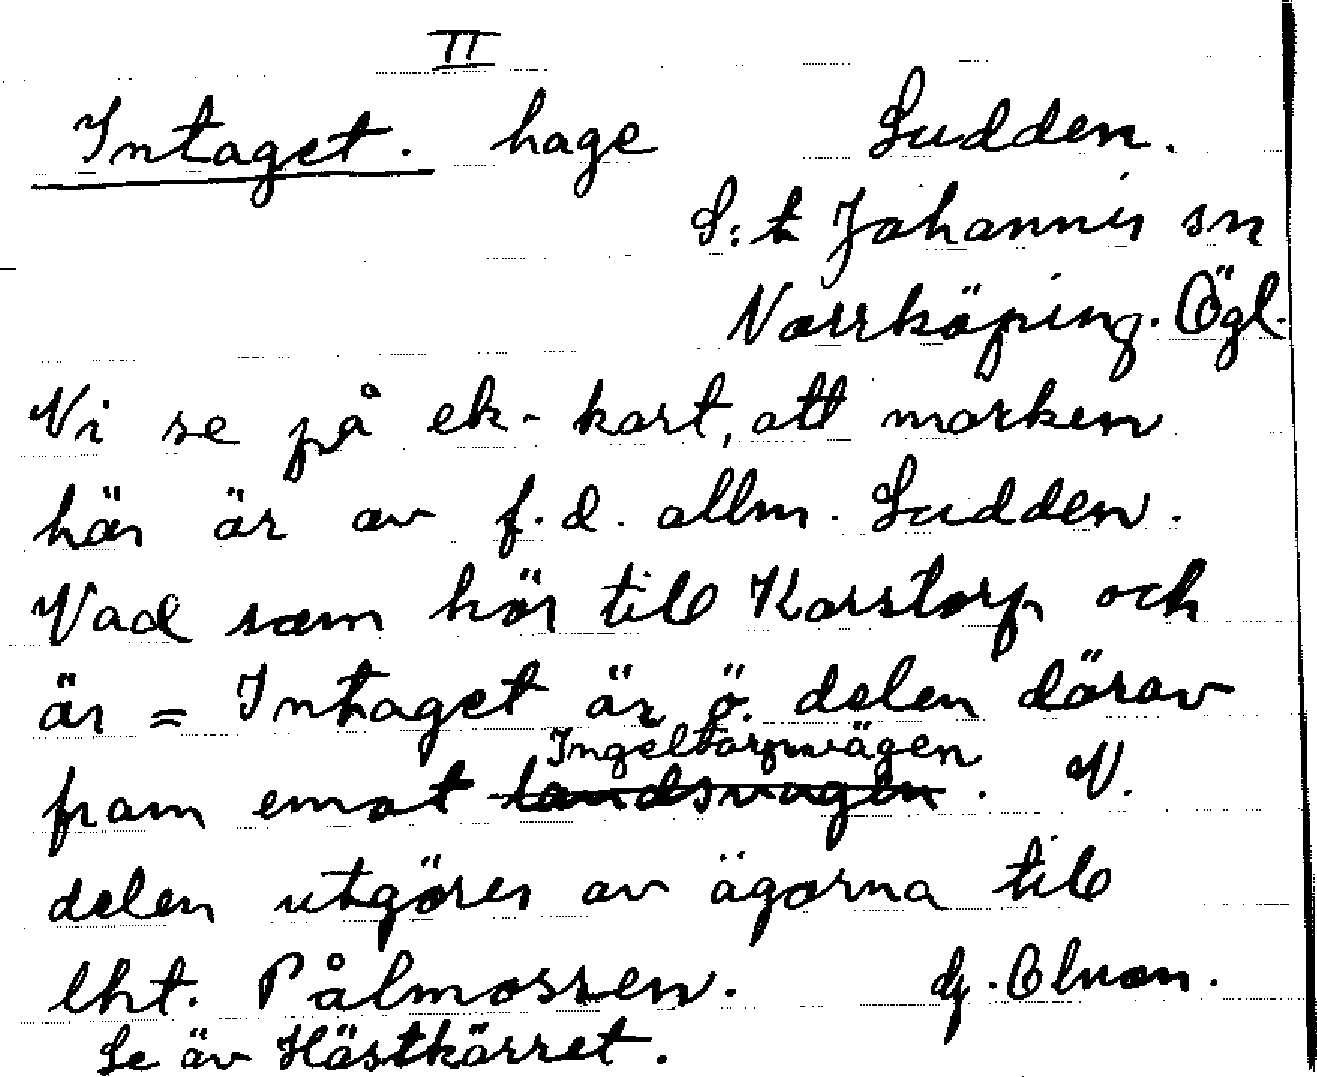 II
Intaget. hage Sudden.
S:t Johannis sn
Norrköping. Ögl.
Vi se på ek-kart, att marken
här är av f.d. allm. Sudden.
Vad som hör till Karstorp och
är = Intaget är ö. delen därav
Ingelstorpsvägen
fram emot landsvägen. V.
delen utgöres av ägorna till
lht. Pålmossen.
Se äv Hästkärret.